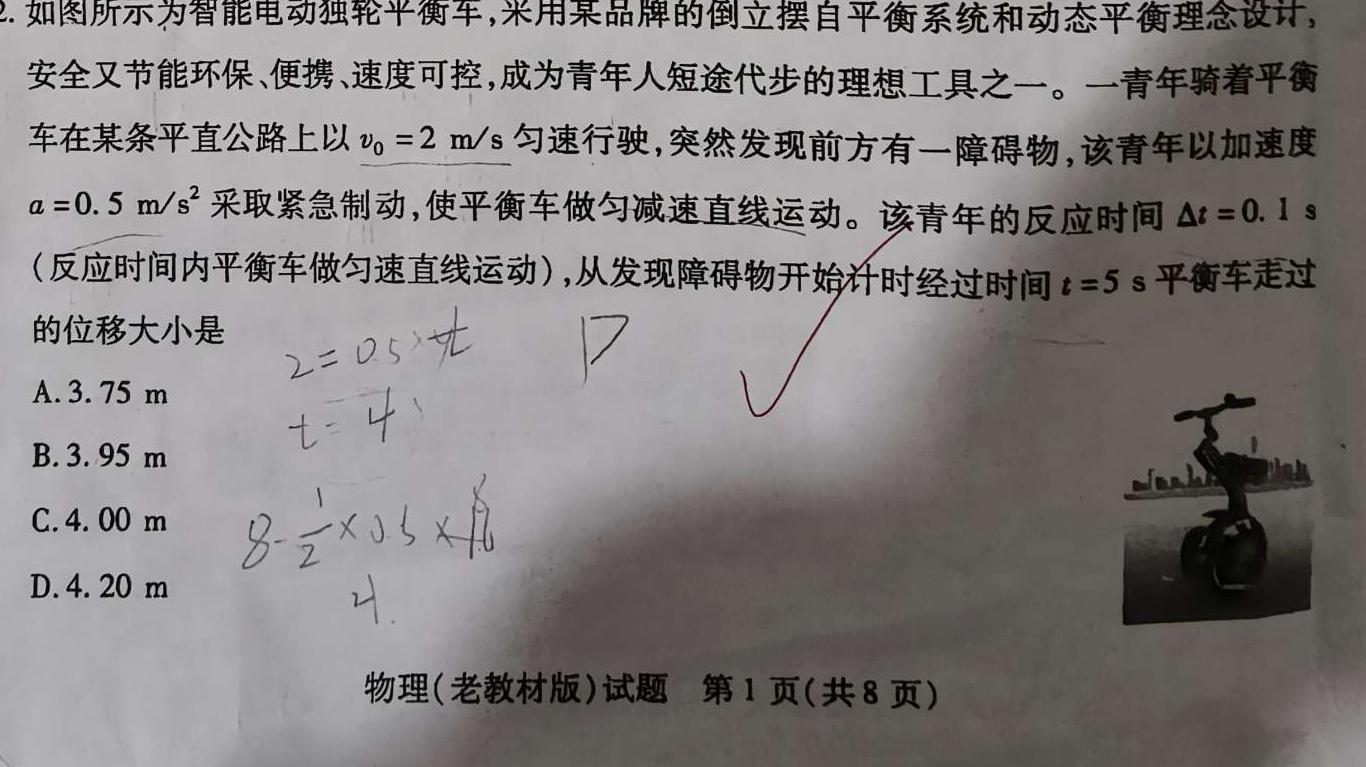 2. 如图所示为智能电动独轮平衡车,采用某品牌的倒立摆自平衡系统和动态平衡理念设计,
安全又节能环保、便携、速度可控,成为青年人短途代步的理想工具之一。一青年骑着平衡
车在某条平直公路上以 v₀ =2 m/s 匀速行驶,突然发现前方有一障碍物,该青年以加速度
a =0.5 m/s² 采取紧急制动,使平衡车做匀减速直线运动。该青年的反应时间 Δt =0.1 s
(反应时间内平衡车做匀速直线运动),从发现障碍物开始计时经过时间 t =5 s 平衡车走过
的位移大小是
2 = 0.5 × t
D
A. 3.75 m
t = 4
B. 3.95 m
C. 4.00 m
8 - 1/2 × 0.5 × 16
D. 4.20 m
4.
物理(老教材版)试题 第 1 页(共 8 页)